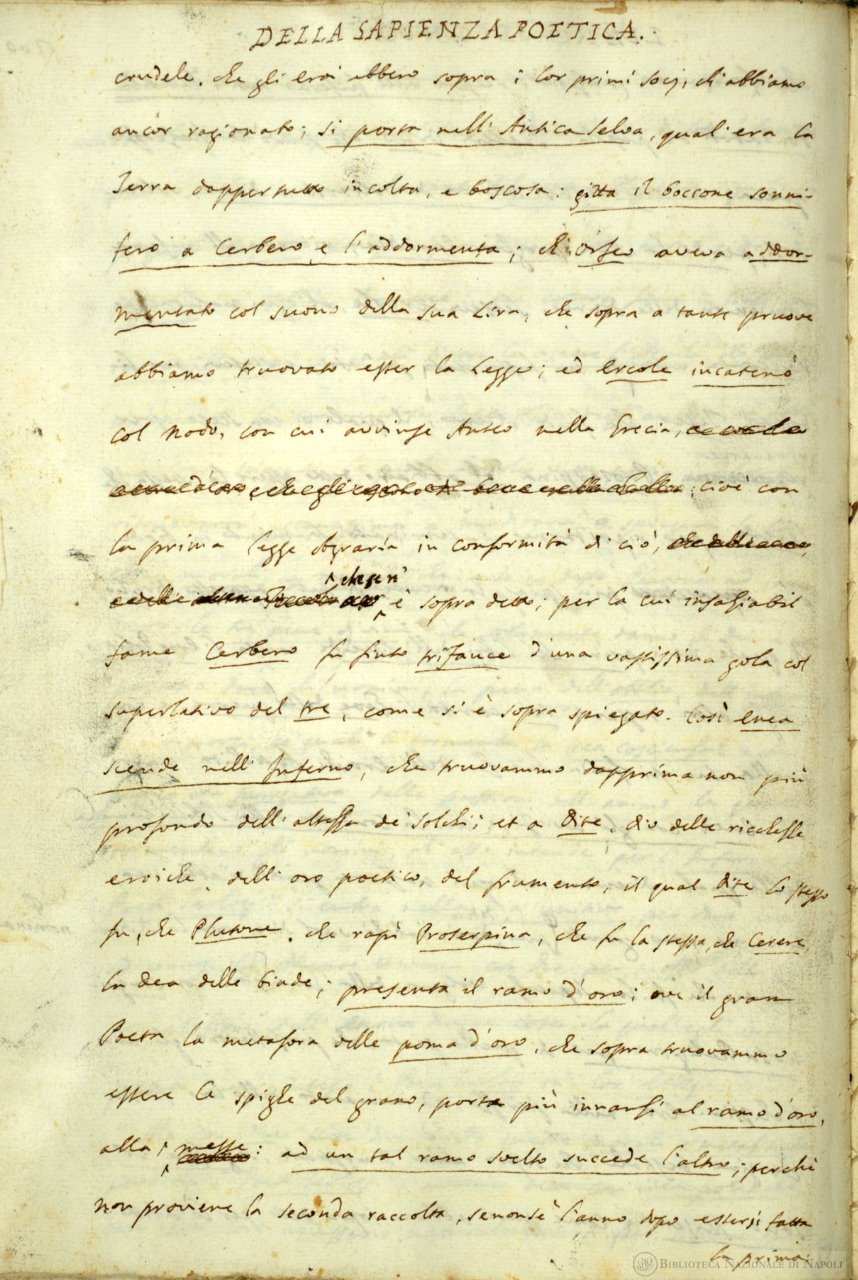 DELLA SAPIENZA POETICA.
crudele, che gli Eroi ebbero sopra i lor primi socj, ch'abbiamo
ancor ragionato; si porta nell'Antica Selva, qual'era la
Terra dappertutto incolta, e boscosa: gitta il boccone sonni-
fero a Cerbero, e l'addormenta; ch'Orfeo aveva addor-
mentato col suono della sua Lira, che sopra a tante pruove
abbiamo truovato esser la Legge; ed Ercole incatenò
col nodo, con cui avvinse Anteo nella Grecia,
cioè con
la prima legge agraria in conformità di ciò,
che se n'
è sopra detto; per la cui insaziabil
fame Cerbero fu finto trifauce d'una vastissima gola col
superlativo del tre, come si è sopra spiegato. Così Enea
scende nell'Inferno, che truovammo dapprima non più
profondo dell'altezza de' solchi; et a Dite, dio delle ricchezze
eroiche, dell'oro poetico, del frumento, il qual Dite lo stesso
fu, che Plutone, che rapì Proserpina, che fu la stessa, che Cerere,
la dea delle biade; presenta il ramo d'oro; ove il gran
Poeta la metafora delle poma d'oro, che sopra truovammo
essere le spighe del grano, porta più innanzi al ramo d'oro,
alla messe: ad un tal ramo svelto succede l'altro; perchè
non proviene la seconda raccolta, senonsè l'anno dopo essersi fatta
la prima:
BIBLIOTECA NAZIONALE DI NAPOLI